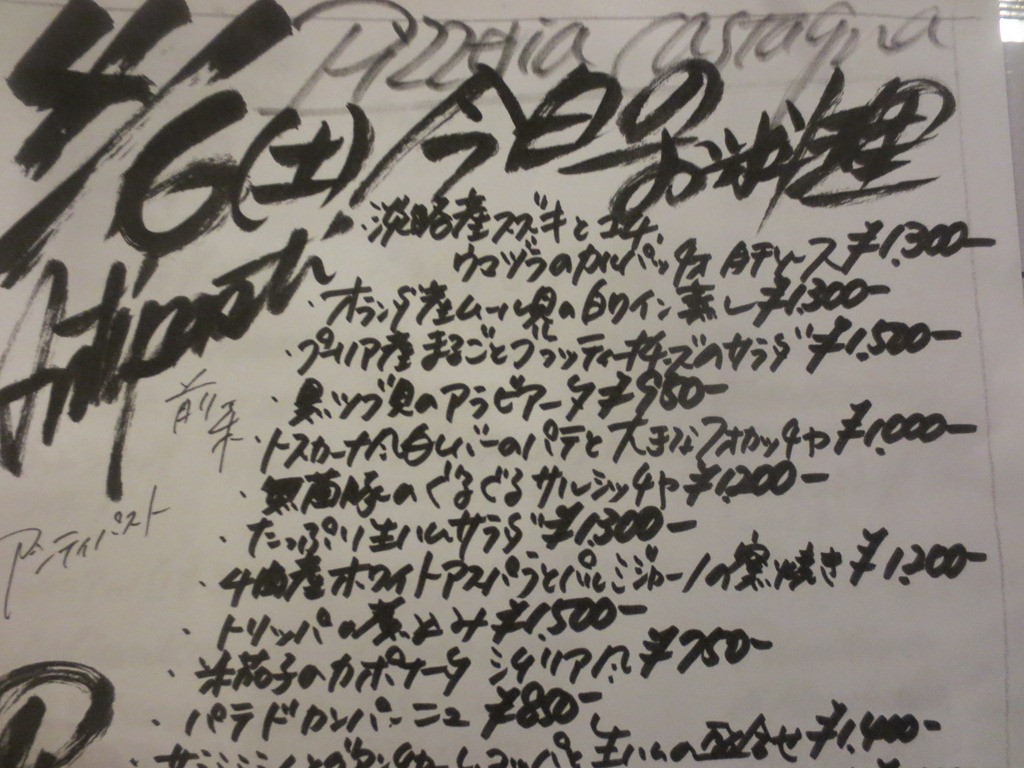 Pizzeria Castagna
4/6(土)/今日のお料理
Antipasti
前菜
アンティパスト
・淡路産スズキとコチ、
ウマヅラのカルパッチョ ソース ¥1,300-
・オランダ産ムール貝の白ワイン蒸し ¥1,300-
・プーリア産まるごとブラッティーナチーズのサラダ ¥1,500-
・黒ツブ貝のアラビアータ ¥950-
・トスカーナ風白レバーのパテと大きなフォカッチャ ¥1,000-
・無菌豚のぐるぐるサルシッチャ ¥1,200-
・たっぷり生ハムサラダ ¥1,300-
・産ホワイトアスパラとパルミジャーノの窯焼き ¥1,200-
・トリッパの煮込み ¥1,500-
・米茄子のカポナータ シチリア風 ¥750-
・パテドカンパーニュ ¥850-
・コッパと生ハムの盛合せ ¥1,400-